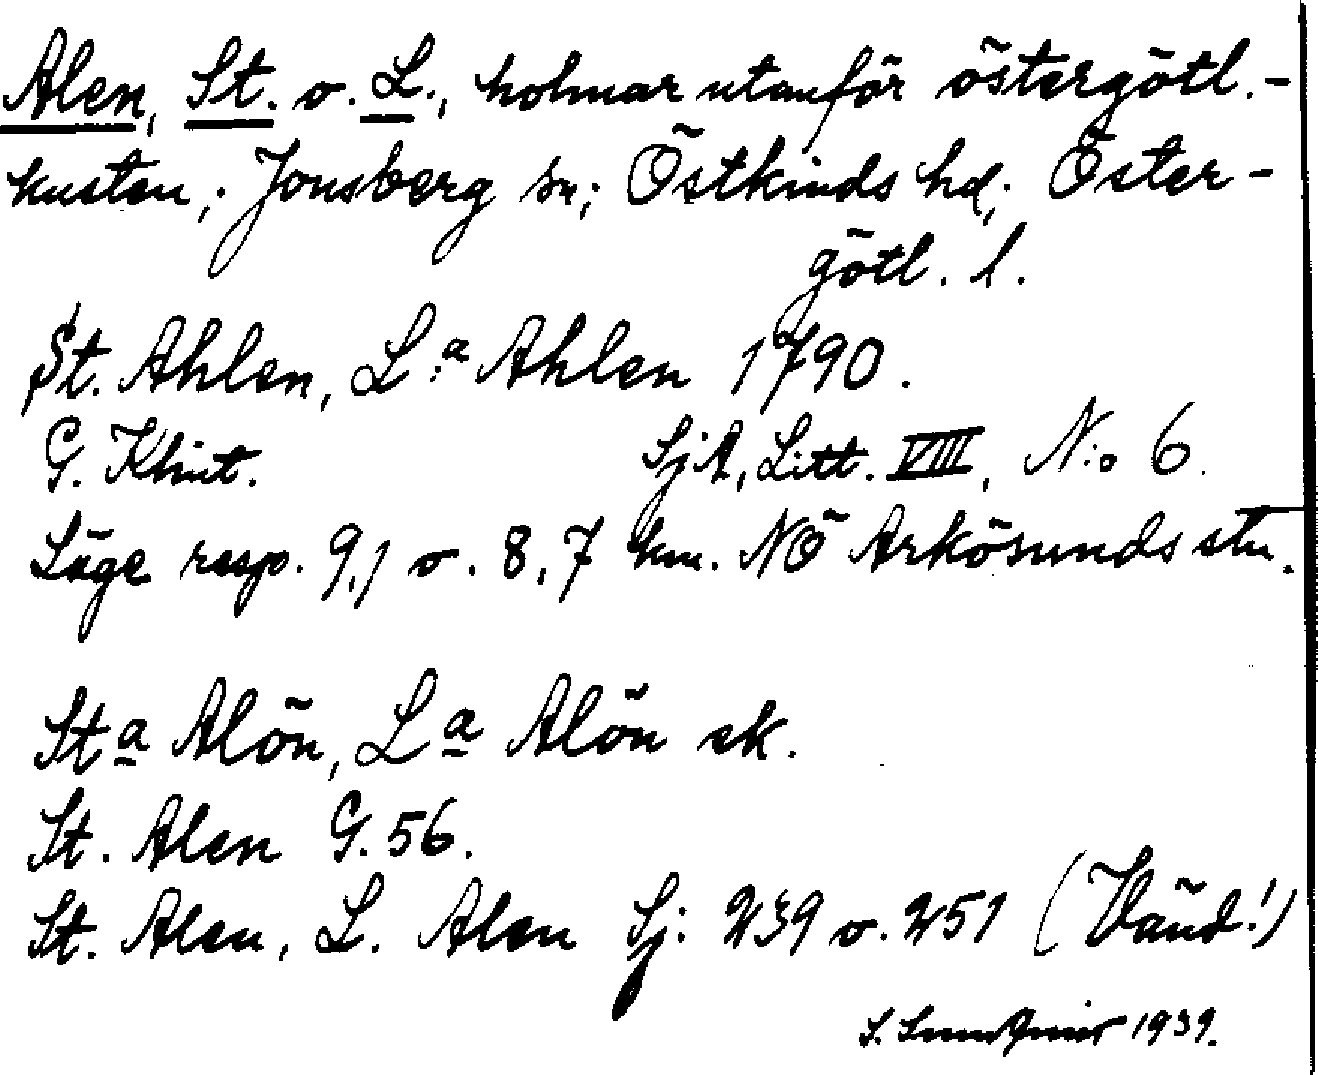 Alen, St. o. L., holmar utanför östergötl.-
kusten; Jonsberg sn; Östkinds hd; Öster-
götl. l.
St. Ahlen, L:a Ahlen 1790.
G. Klint. SjA, Litt. VIII, N:o 6.
Läge resp. 9,1 o. 8,7 km. NÖ Arkösunds stn.
Sta Alön, La Alön sk.
St. Alen G. 56.
St. Alen, L. Alen Sj: 239 o. 251 (Vänd!)
S. 1939.